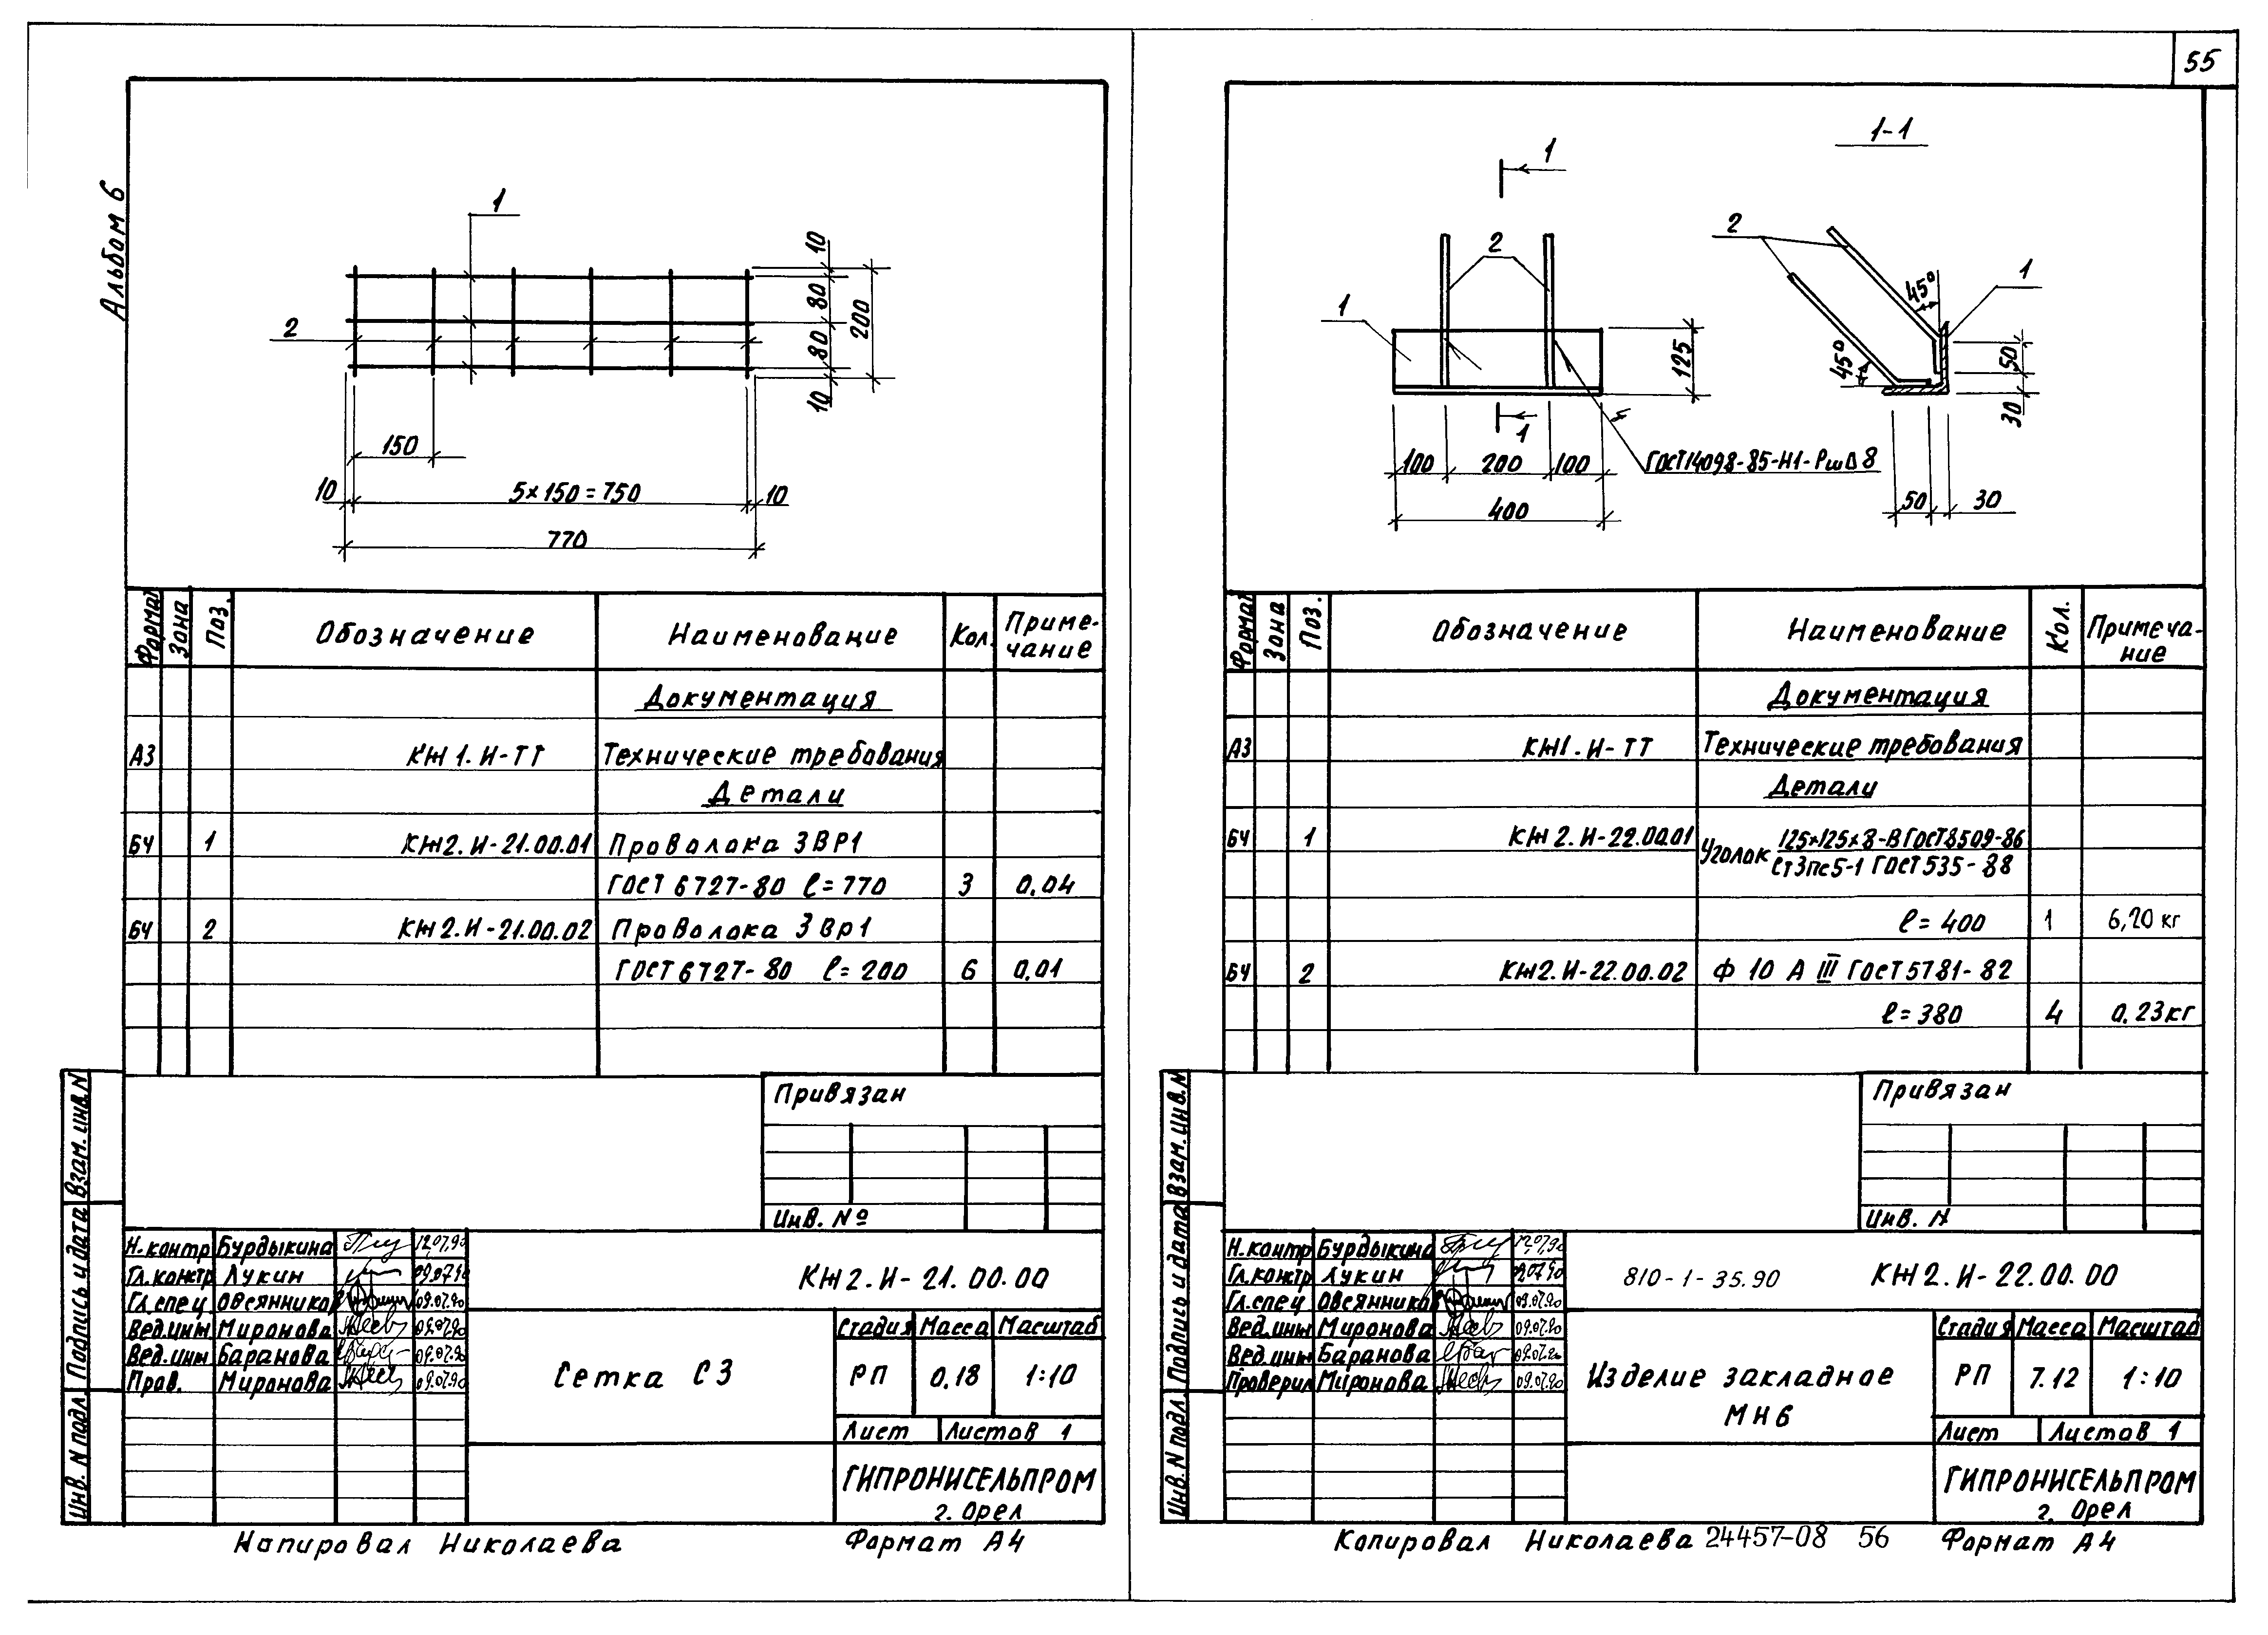 55
Альбом 6
1
2
10
80
80
10
200
150
10
5×150=750
10
770
Формат
Зона
Поз.
Обозначение
Наименование
Кол.
Приме-
чание
Документация
А3 КЖ1.И-ТТ Технические требования
Детали
БЧ 1 КЖ2.И-21.00.01 Проволока 3ВР1
ГОСТ 6727-80 ℓ=770 3 0,04
БЧ 2 КЖ2.И-21.00.02 Проволока 3Вр1
ГОСТ 6727-80 ℓ=200 6 0,01
Привязан
Инв. №
Взам. инв. N
Подпись и дата
Инв. N подл.
Н.контр Бурдыкина 12.07.90
Гл.констр Лукин 09.07.90
Гл.спец Овсянников 09.07.90
Вед.инж Миронова 09.07.90
Вед.инж Баранова 09.07.90
Пров. Миронова 09.07.90
КЖ2.И-21.00.00
Сетка С3
Стадия Масса Масштаб
РП 0,18 1:10
Лист Листов 1
ГИПРОНИСЕЛЬПРОМ
г. Орел
Копировал Николаева Формат А4
1-1
1
2
1
125
1
100 200 100
400
ГОСТ 14098-85-Н1-РшΔ8
2
1
45°
45°
50
30
50 30
Формат
Зона
Поз.
Обозначение
Наименование
Кол.
Примеча-
ние
Документация
А3 КЖ1.И-ТТ Технические требования
Детали
БЧ 1 КЖ2.И-22.00.01 Уголок 125×125×8-В ГОСТ 8509-86
Ст3пс5-1 ГОСТ 535-88
ℓ=400 1 6,20 кг
БЧ 2 КЖ2.И-22.00.02 Ф 10 А III ГОСТ 5781-82
ℓ=380 4 0,23кг
Привязан
Инв. N
Взам. инв. N
Подпись и дата
Инв. N подл.
Н.контр Бурдыкина 12.07.90
Гл.констр Лукин 09.07.90
Гл.спец Овсянников 09.07.90
Вед.инж Миронова 09.07.90
Вед.инж Баранова 09.07.90
Проверил Миронова 09.07.90
810-1-35.90 КЖ2.И-22.00.00
Изделие закладное
МН6
Стадия Масса Масштаб
РП 7.12 1:10
Лист Листов 1
ГИПРОНИСЕЛЬПРОМ
г. Орел
Копировал Николаева 24457-08 56 Формат А4